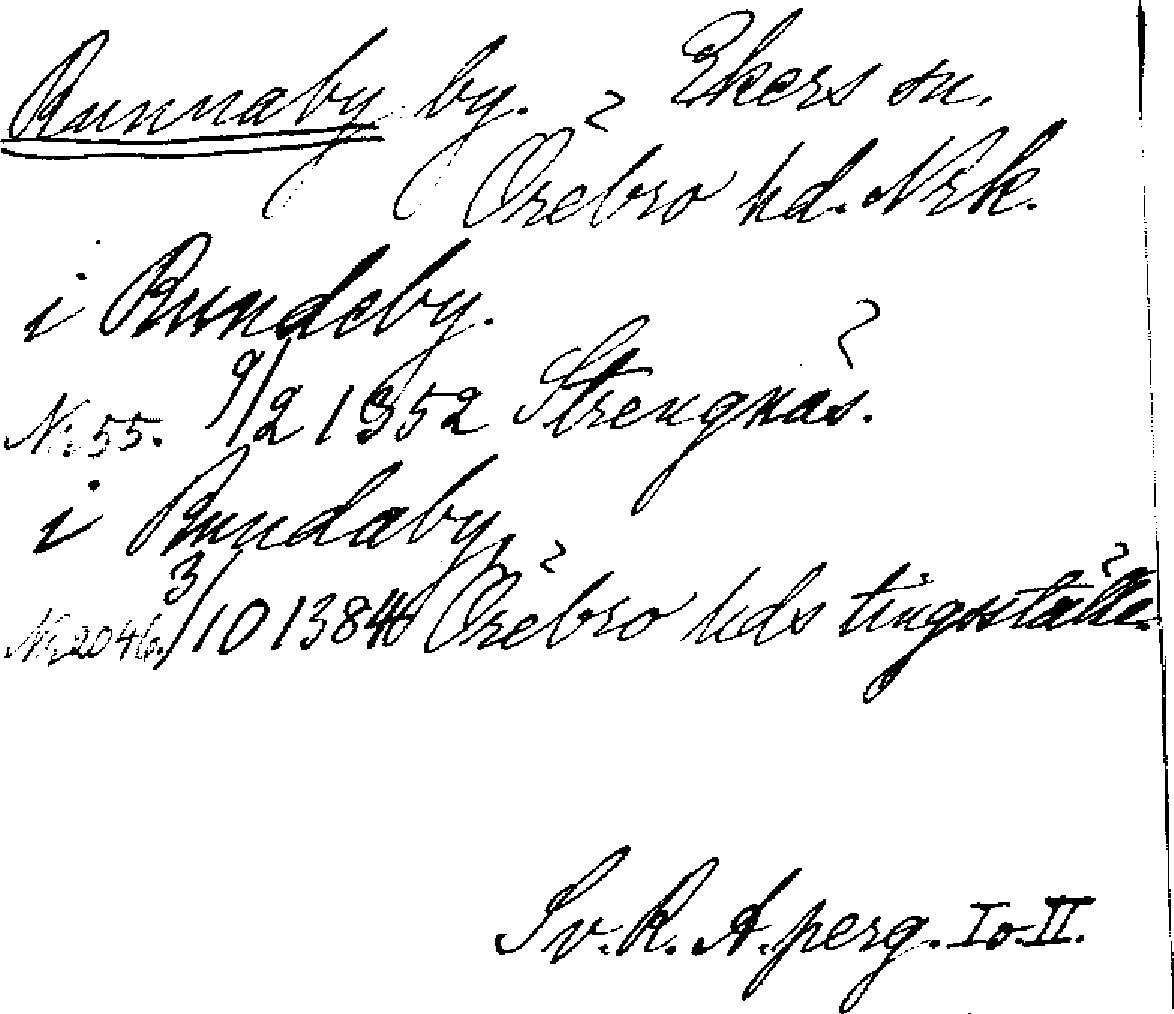 Runnaby by. Ekers sn.
Örebro hd. Nrk.
i Rundeby.
N:55. 9/2 1352 Strengnäs.
i Rundaby,
N:2046. 3/10 1384 Örebro hds tingsställe.
Sv. R. A. perg. I o. II.